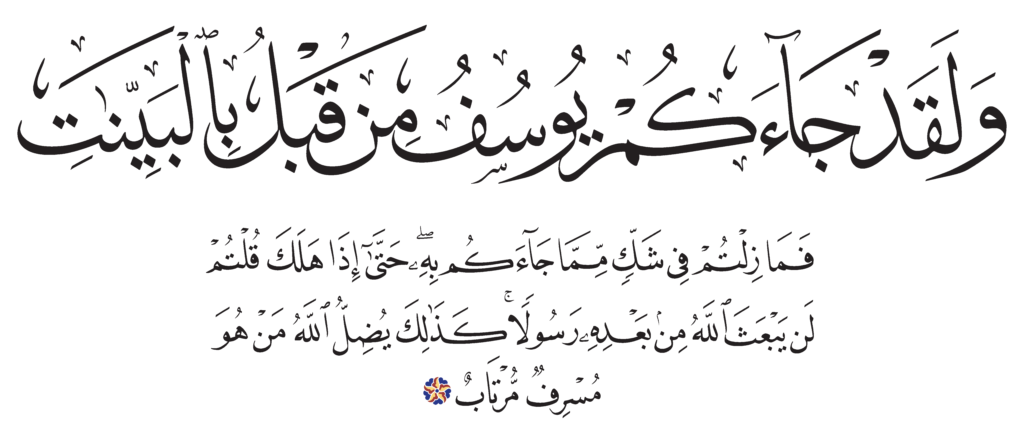 وَلَقَدْ جَآءَكُمْ يُوسُفُ مِن قَبْلُ بِٱلْبَيِّنَـٰتِ
فَمَا زِلْتُمْ فِى شَكٍّۢ مِّمَّا جَآءَكُم بِهِۦ ۖ حَتَّىٰٓ إِذَا هَلَكَ قُلْتُمْ
لَن يَبْعَثَ ٱللَّهُ مِنۢ بَعْدِهِۦ رَسُولًۭا ۚ كَذَٰلِكَ يُضِلُّ ٱللَّهُ مَنْ هُوَ
مُسْرِفٌۭ مُّرْتَابٌ